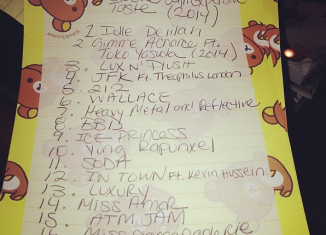 Taste (2014)
1 Idle Delilah
2 Gimme Achance Ft.
Yuko Yasuda (2014)
3. LUX N' PlUSH
4. JFK Ft. Theophilus London
5. 212
6. WALLACE
7. Heavy Metal and Reflective
8. BBD
9. ICE PRINCESS
10. Yung Rapunxel
11. SODA
12. IN TOWN Ft. Kevin Hussein
13. LUXURY
14. Miss Amor
15. ATM JAM
16. Miss